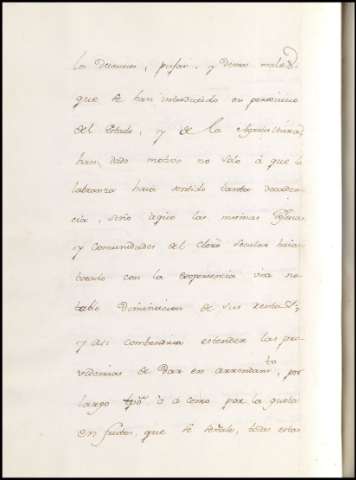 los Decimos, pujas, y demas males
que se han introducido en perjuicio
del Estado, y de la Agricultura
han dado motivo no solo á que la
labranza haia sentido tanta decaden
cia, sino aque las mismas Iglesias
y Comunidades del clero secular haian
tocado con la experiencia una no
table Diminucion de sus rentas;
y asi combendria estender las pro
videncias de Dar en arrendam.to, por
largo tpo. ó á censo por la quota
en frutos, que se señale, todas estas